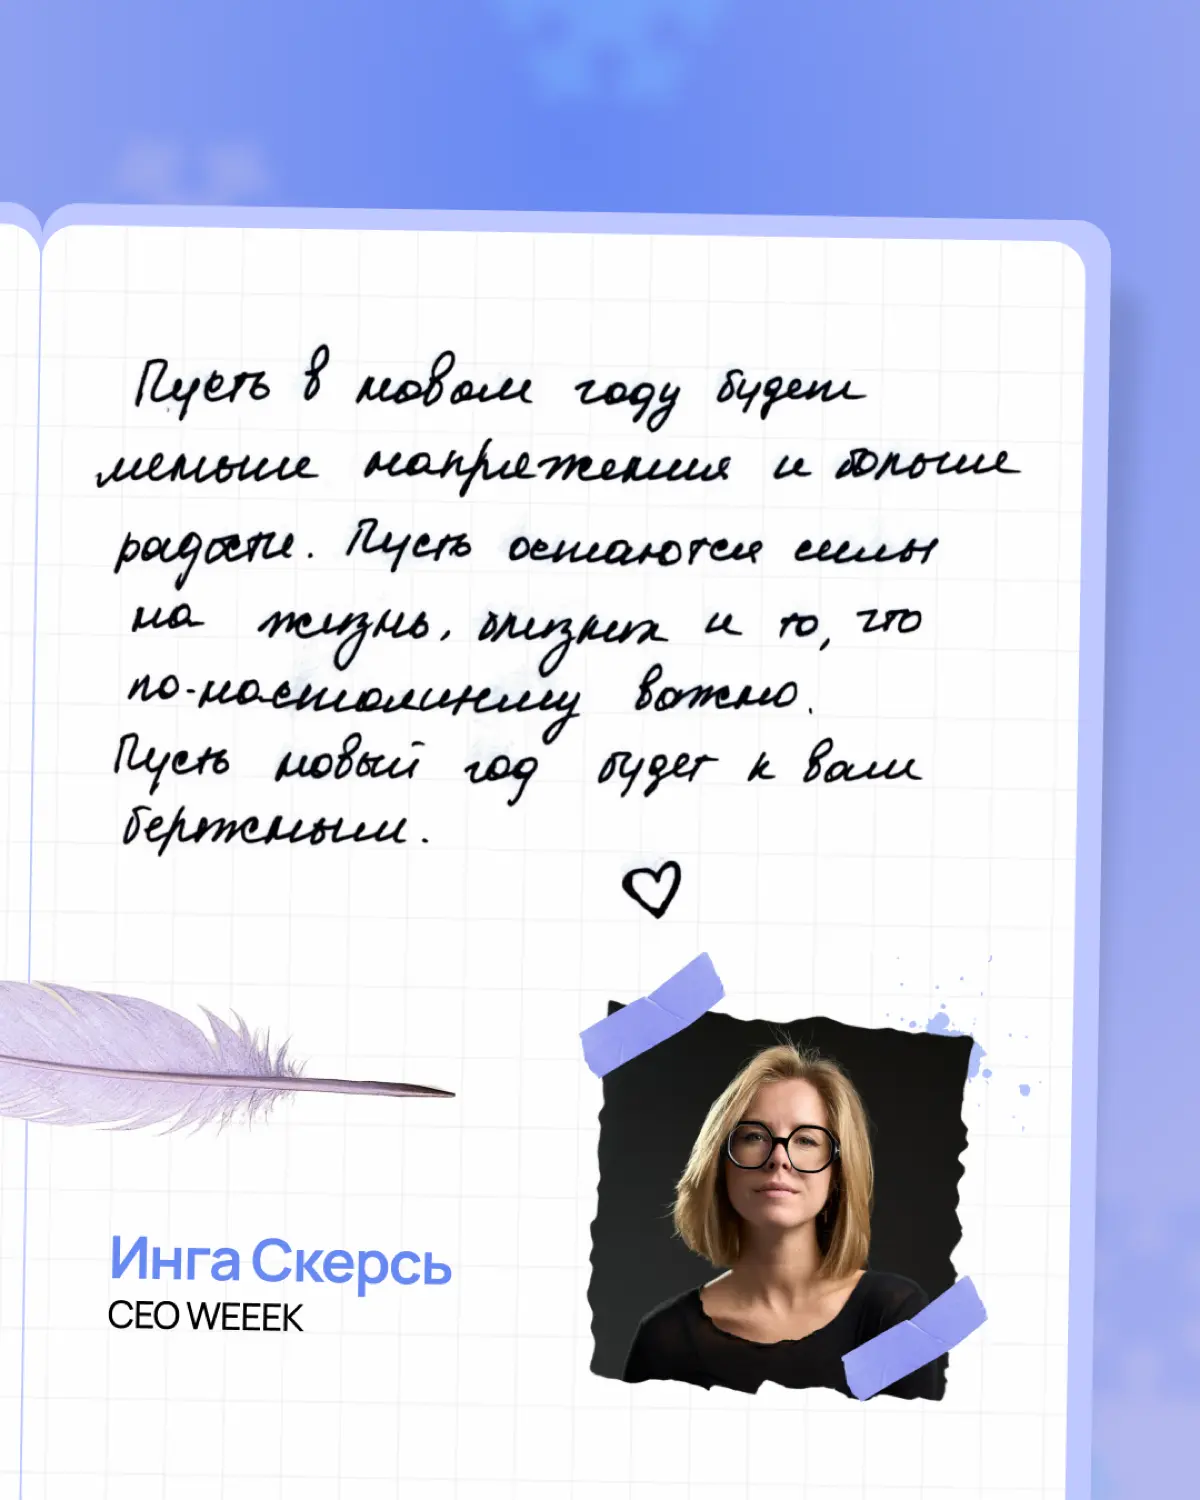 Пусть в новом году будет
меньше напряжения и больше
радости. Пусть остаются силы
на жизнь, близких и то, что
по-настоящему важно.
Пусть новый год будет к вам
бережным.
Инга Скерсь
CEO WEEEK